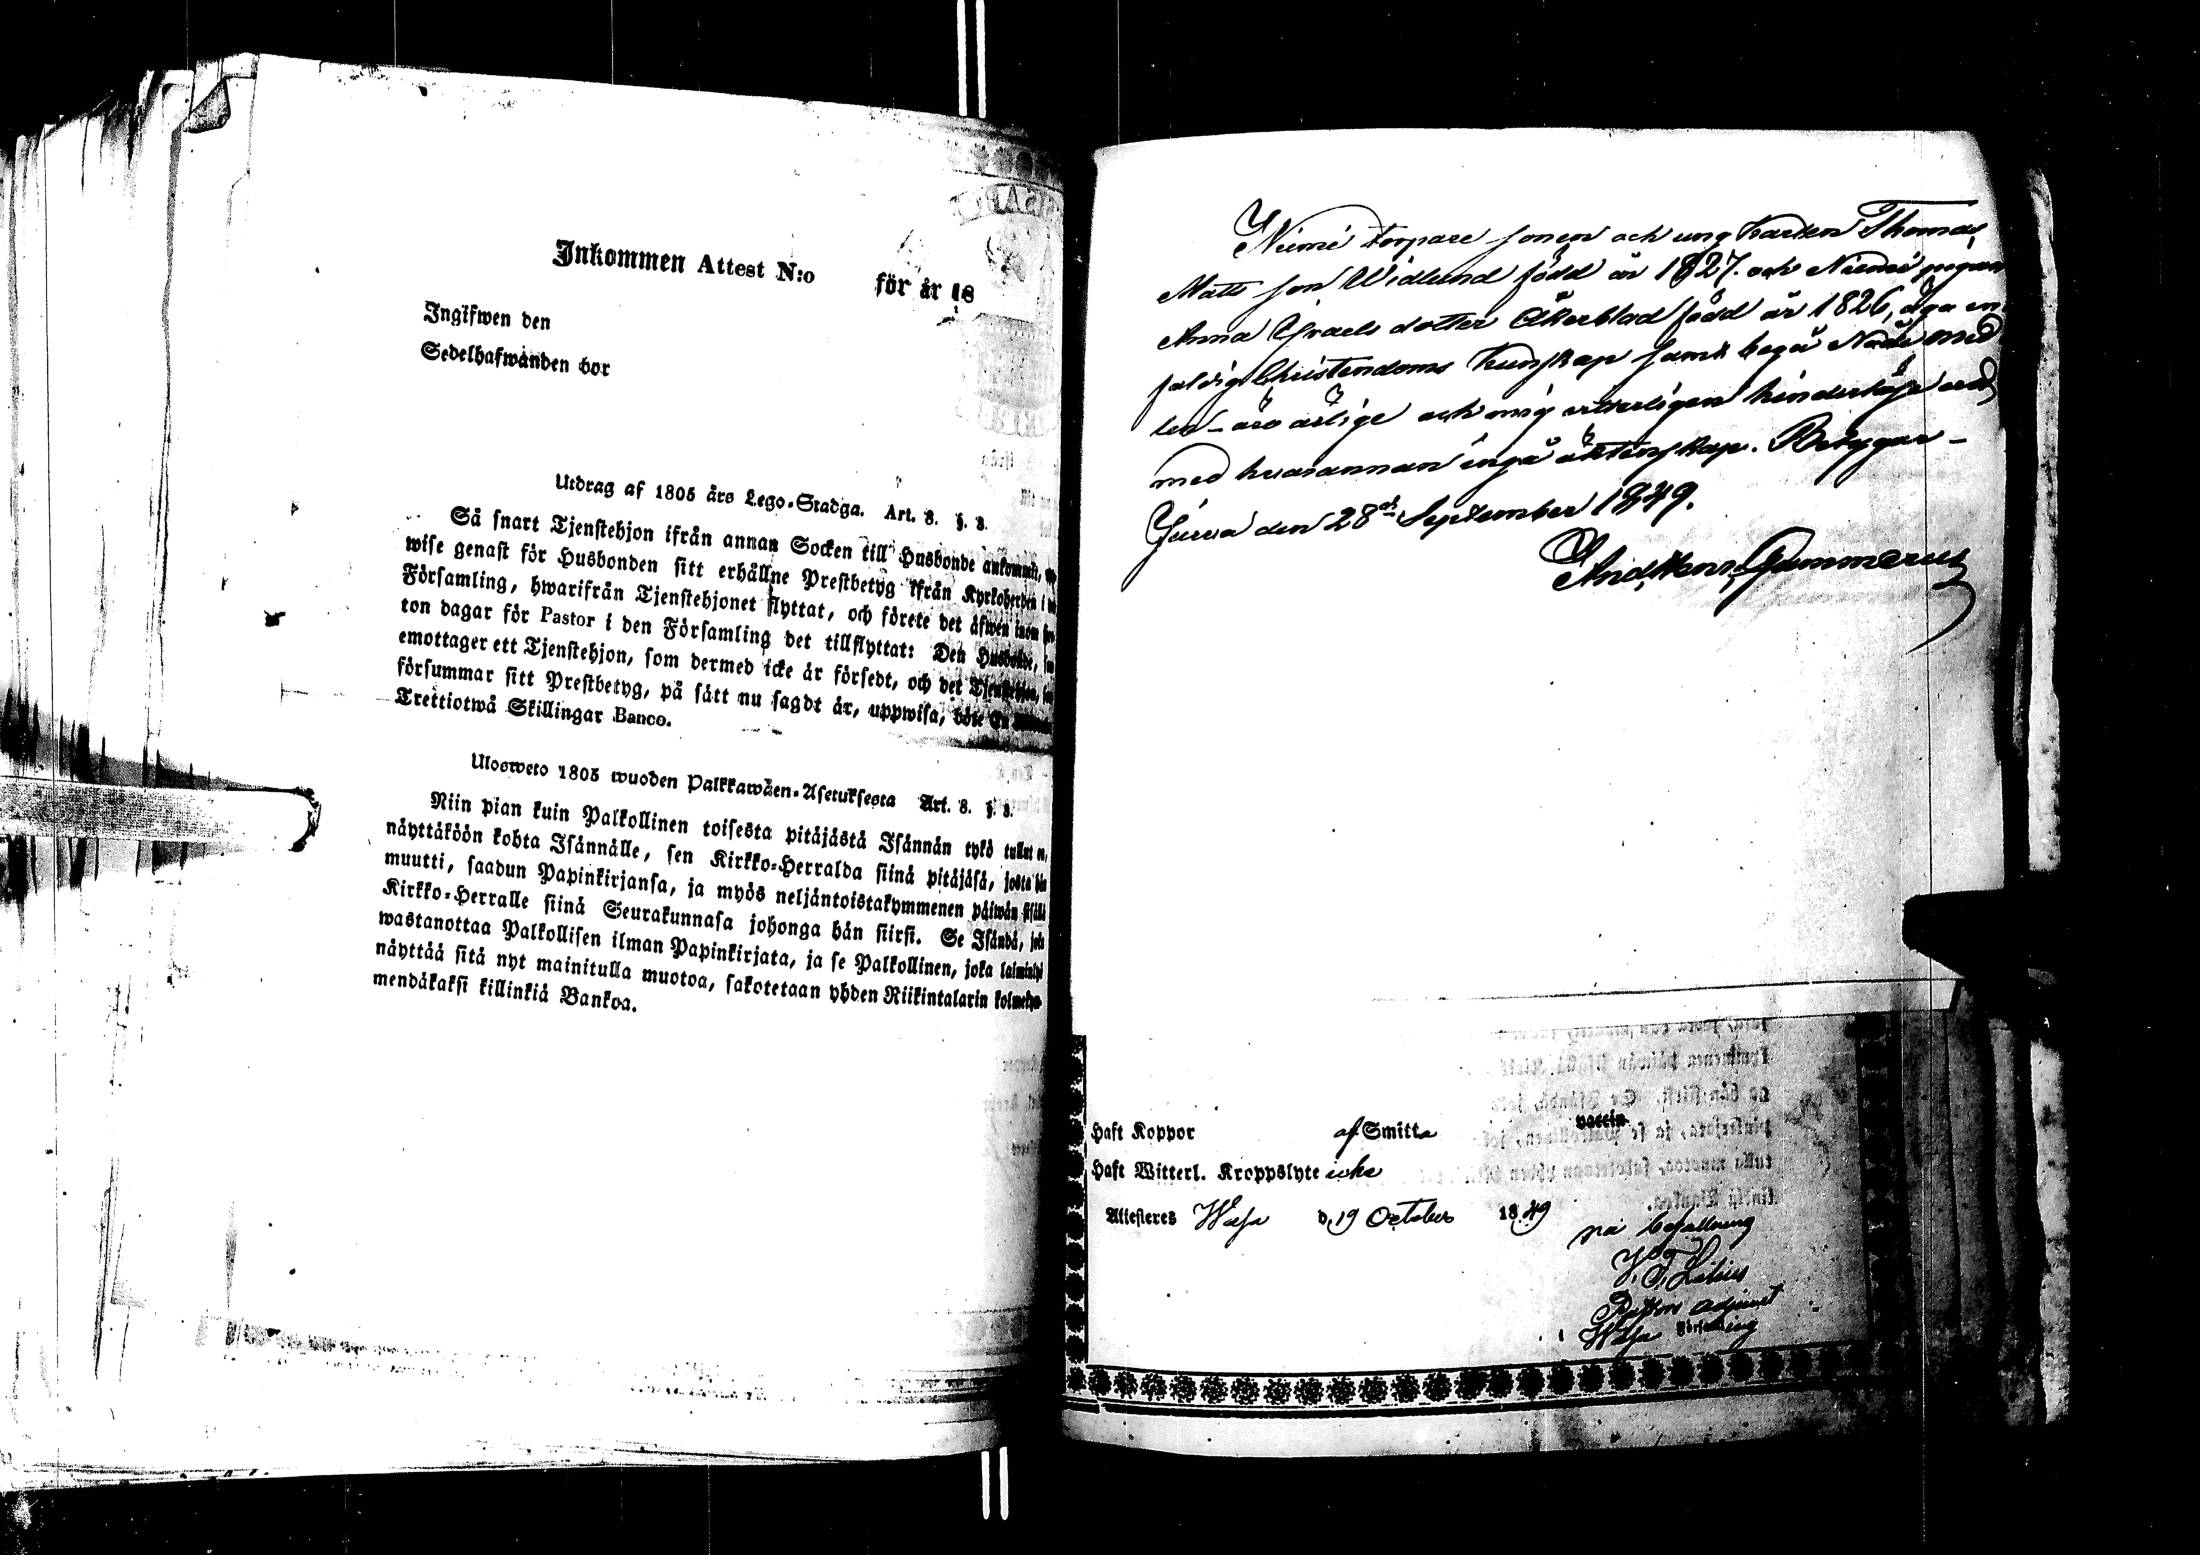 Inkommen Attest N:o för år 18
Ingifwen den
Sedelhafwanden bor
Utdrag af 1805 års Lego-Stadga. Art. 8. §. 3.
Så snart Tjenstehjon ifrån annan Socken till Husbonde ankommit,
wise genast för Husbonden sitt erhållne Prestbetyg ifrån Kyrkoherden i
Församling, hwarifrån Tjenstehjonet flyttat, och förete det äfwen inom
ton dagar för Pastor i den Församling det tillflyttat: Den Husbonde,
emottager ett Tjenstehjon, som dermed icke är försedt, och det Tjenstehjon,
försummar sitt Prestbetyg, på sätt nu sagdt är, uppwisa, böte En
Trettiotwå Skillingar Banco.
Ulosweto 1805 wuoden Palkkawäen-Asetuksesta Art. 8. §. 3.
Niin pian kuin Palkollinen toisesta pitäjästä Isännän tykö tullut on,
näyttäköön kohta Isännälle, sen Kirkko-Herralda siinä pitäjäsä, josta hän
muutti, saadun Papinkirjansa, ja myös neljäntoistakymmenen päiwän sisällä
Kirkko-Herralle siinä Seurakunnasa johonga hän siirsi. Se Isändä, joka
wastanottaa Palkollisen ilman Papinkirjata, ja se Palkollinen, joka laiminlyö
näyttää sitä nyt mainitulla muotoa, sakotetaan yhden Riikintalarin kolmekym-
mendäkaksi killinkiä Bankoa.
Niemi torpare sonen och ung Karlen Thomas
Matts son Widlund född år 1827. och Niemi pigan
Anna Israels dotter Åkerblad född år 1826, äga en
faldig Christendoms Kunskap samt begå Nåde med
len – äro ärlige och mig veterligen hinderlöse att
med hvarannan ingå äktenskap. Betygar –
Jurva den 28de September 1849.
And. Hem. Gummerus
Haft Koppor af Smitta vaccin
Haft Witterl. Kroppslyte icke
Attesteres Wasa d. 19 October 1849
på befallning
Pastors adjunct
i Wasa Församling